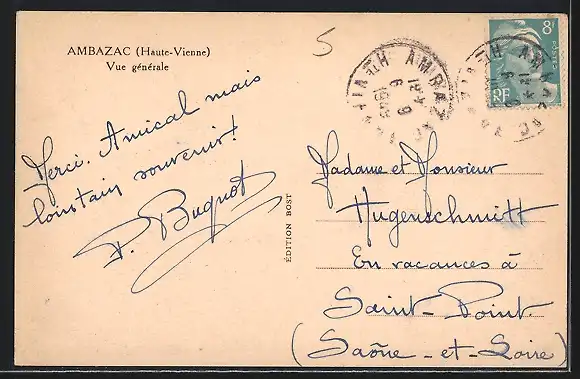 AMBAZAC (Haute-Vienne)
Vue générale
5
Merci. Amical mais
lointain souvenir!
P. Buquot
ÉDITION BOST
8F
RF
AMBAZAC
Madame et Monsieur
Hugenschmitt
En vacances à
Saint-Point
(Saône-et-Loire)